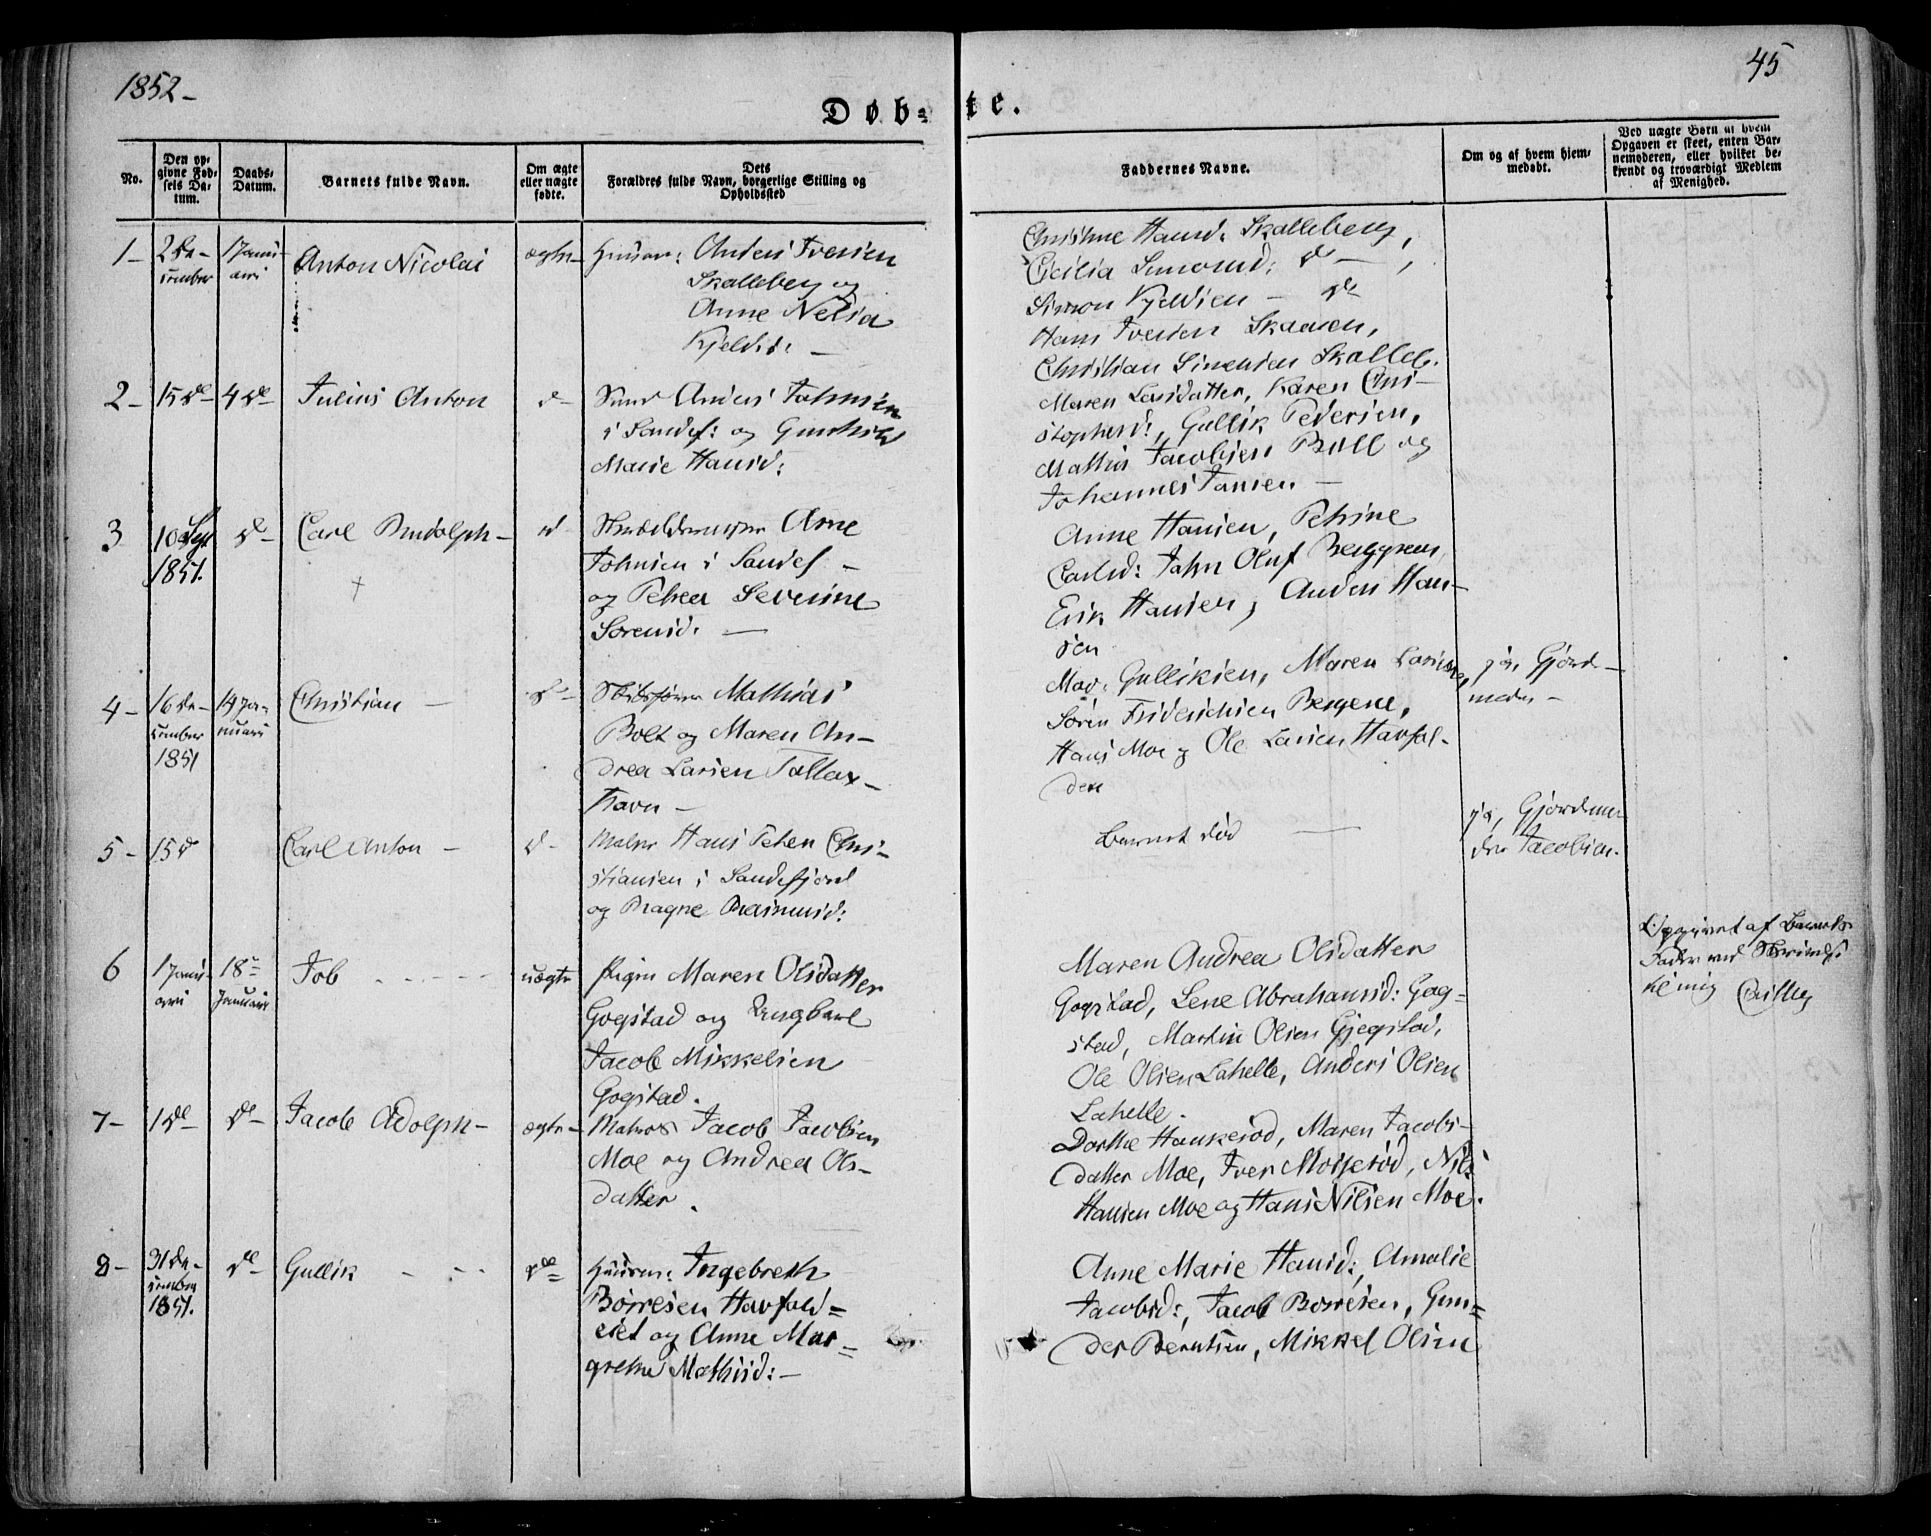 1852-
45
Døb-te.
No.
Den op-
givne Fød-
sels Da-
tum.
Daabs-
Datum.
Barnets fulde Navn.
Om ægte
eller uægte
fødte.
Dets
Forældres fulde Navn, borgerlige Stilling og
Opholdssted
Faddernes Navne.
Om og af hvem hjem-
medøbt.
Ved uægte Børn af hvem
Opgaven er skeet, enten Bar-
nemoderen, eller hvilket be-
kjendt og troværdigt Medlem
af Menighed.
1-
2 De-
cember
1 Janu-
ari
Anton Nicolai
ægte-
Huusm: Anders Iversen
Skalleberg og
Anne Nelia
Kjeldsd: -
Christine Hansd: Skalleberg,
Cicilia Simonsd: do - ,
Simon Kjeldsen - do
Hans Iversen Skaasen,
Christian Simensen Skalleb.
2-
15 de-
4 de
Julius Anton
d-
Smed Anders Johnsen
i Sandef: og Gunhild
Marie Hansd:
Maren Larsdatter, Karen Chri-
stophersd:, Gullik Pedersen,
Mathis Jacobsen Bull og
Johannes Jansen -
3
10 Sept
1851.
de-
Carl Rudolph-
d
Arne
Johnsen i Sandef -
og Petrea Severine
Sørensd: -
Anne Hansen, Petrine
Carlsd: John Oluf Berggreen,
Erik Hansen, Anders Han-
sen
4-
16 De-
cember
1851
14 Ja-
nuari
Christian -
d-
Skibsfører Mathias
Bolt og Maren An-
drea Larsen Tallax-
havn -
Mad: Gulliksen, Maren Larsen,
Søren Friderichsen Bergene,
Hans Moe og Ole Larsen Havfal-
den
ja, Gjord-
moder -
5-
15 d
Carl Anton -
d-
Maler Hans Peter Chri-
stiansen i Sandefjord
og Ragne Rasmusd:
Barnet død
ja, Gjordmo-
der Jacobsen.
6
1 Janu-
ari
18
Januari
Job - - - - -
uægte
Pigen Maren Olsdatter
Gogstad og Ungkarl
Jacob Mikkelsen
Gogstad.
Maren Andrea Olsdatter
Gogstad, Lene Abrahamsd: Gog-
stad, Martin Olsen Gjegstad,
Ole Olsen Lahelle, Anders Olsen
Lahelle.
Opgivet af Barnets
Fader ved
til mig
7-
1 de
de-
Jacob Adolph-
ægte-
Matros Jacob Jacobsen
Moe og Andrea Ols-
datter.
Dorthe Haukerød, Maren Jacobs-
datter Moe, Iver Moiserød, Nils
Hansen Moe og Hans Nilsen Moe.
8-
31 De-
cember
1851.
de-
Gullik - - -
de
Huusm: Ingebreth
Børresen Havfald-
eiet og Anne Mar-
grethe Mathisd: -
Anne Marie Hansd:, Amalie
Jacobsd:, Jacob Børresen, Gun-
der Berntsen, Mikkel Olsen